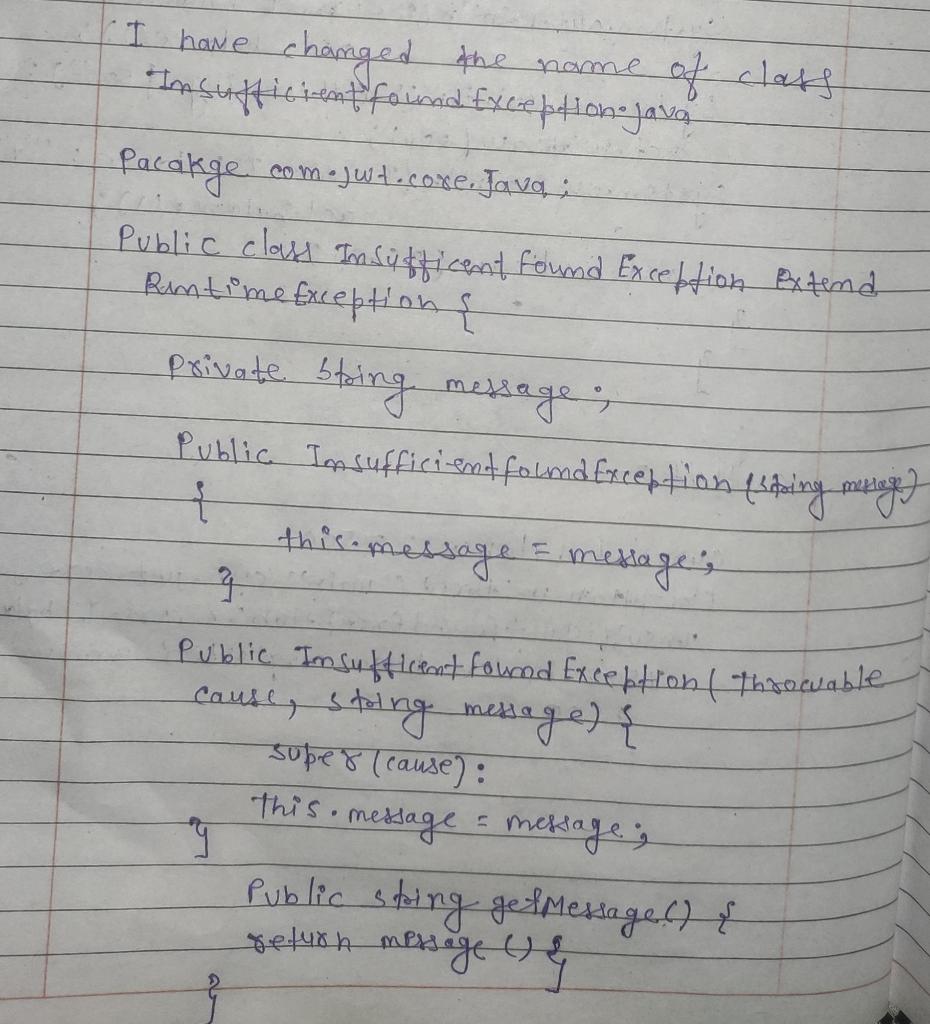 I have changed the name of class
InsufficientfoundException.java
Pacakge com.jwt.core.Java;
Public class Insufficent found Exception Extend
RuntimeException {
private String message;
Public InsufficientfoundException (String message)
{
this.message = message;
}
Public Insufficent found Exception ( Throwable
cause, string message) {
super (cause):
This.message = message;
}
Public string getMessage() {
return message () }
}